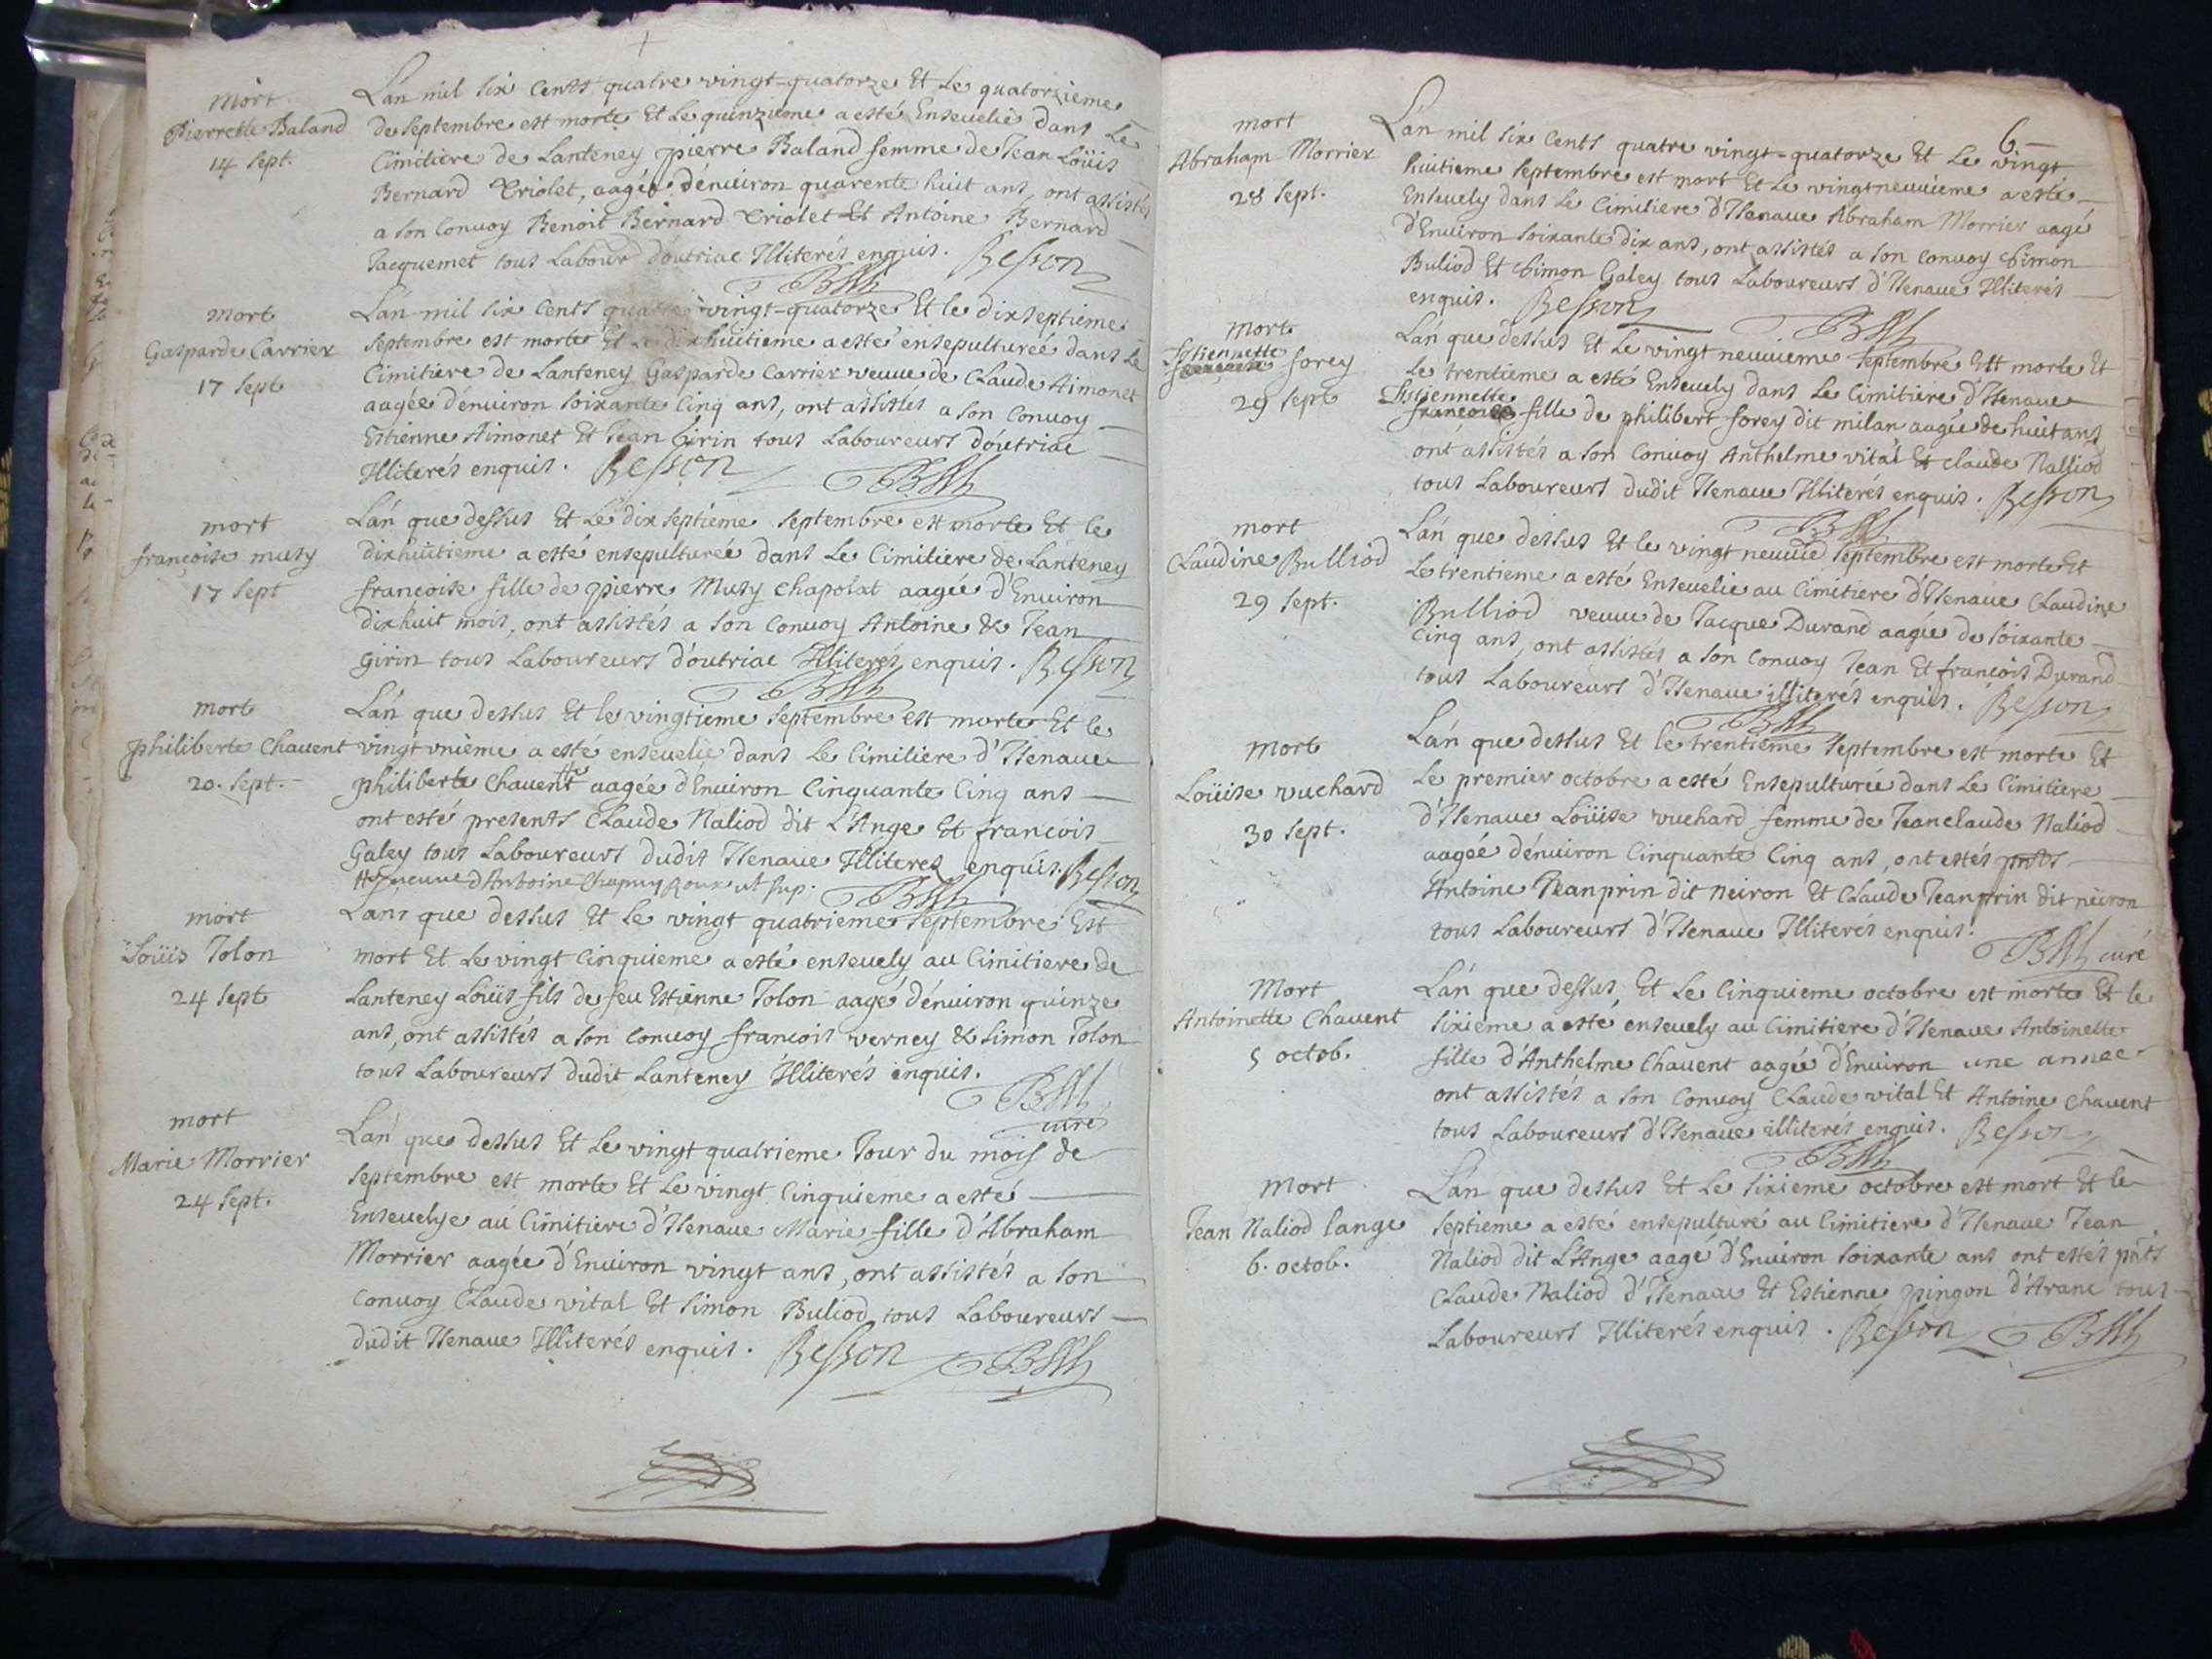 mort
Pierrette Baland
14 sept.
L'an mil six cents quatre vingt-quatorze Et Le quatorzieme
de septembre est morte Et Le quinzieme a esté Enseuelie dans Le
Cimitiere de Lanteney pierre Baland femme de Jean Loüis
Bernard Criolet, aagée d'enuiron quarente huit ans, ont assistés
a son Conuoy Benoit Bernard Criolet Et Antoine Bernard
Jacquemet tous Labour d'outriac Illiterés enquis. Besson
mort
Gasparde Carrier
17 sept
L'an mil six Cents quatre vingt-quatorze Et le dix septieme
septembre est morte Et Le dixhuitieme a esté ensepulturéé dans Le
Cimitiere de Lanteney Gasparde Carrier veuue de Claude Aimonet
aagéé d'enuiron soixante Cinq ans, ont assistés a son Conuoy
Estienne Aimonet Et Jean Girin tous Laboureurs d'outriac
Illiterés enquis. Besson
mort
françoise musy
17 sept
L'an que dessus Et Le dix septieme septembre est morte Et le
dixhuitieme a esté ensepulturéé dans Le Cimitiere de Lanteney
francoise fille de pierre Musy Chapolat aagée d'Enuiron
dixhuit mois, ont assistés a son Conuoy Antoine & Jean
girin tous Laboureurs d'outriac Illiterés enquis. Besson
mort
philiberte Chauent
20. sept.
L'an que dessus Et le vingtieme septembre est morte Et le
vingt vnième a esté enseuelie dans Le Cimitiere d'Izenaue
philiberte Chauent aagée d'Enuiron Cinquante Cinq ans
ont esté presents Claude Naliod dit L'Ange Et francois
Galey tous Laboureurs dudit Izenaue Illiteres enquis. Besson
veuue d'Antoine Chapuy Roux ut sup.
mort
Loüis Tolon
24 sept
L'an que dessus Et Le vingt quatrieme septembre Est
mort Et Le vingt Cinquieme a esté enseuely au Cimitiere de
Lanteney Loüis fils de feu Estienne Tolon aagé d'énuiron quinze
ans, ont assistés a son Conuoy francois verney & simon Tolon
tous Laboureurs dudit Lanteney Illiterés enquis.
curé
mort
Marie Morrier
24 sept.
L'an que dessus Et Le vingt quatrieme Jour du mois de
septembre est morte Et Le vingt Cinquieme a esté
Enseuelye au Cimitiere d'Izenaue Marie fille d'Abraham
Morrier aagée d'Enuiron vingt ans, ont assistés a son
Conuoy Claude vital Et simon Buliod tous Laboureurs
dudit Izenaue Illiterés enquis. Besson
6
mort
Abraham Morrier
28 sept.
L'an mil six Cents quatre vingt-quatorze Et Le vingt
huitieme septembre est mort Et Le vingtneuuieme a esté
Enseuely dans Le Cimitiere d'Izenaue Abraham Morrier aagé
d'Enuiron soixante dix ans, ont assistés a son Conuoy simon
Buliod Et simon Galey tous Laboureurs d'Izenaue Illiterés
enquis. Besson
mort
Estiennette
forey
29 sept
L'an que dessus Et Le vingtneuuieme septembre Est morte Et
Le trentieme a esté Enseuely dans Le Cimitiere d'Izenaue
Estiennette
francoise fille de philibert forey dit milan aagée de huit ans
ont assistés a son Conuoy Anthelme vital Et Claude Nalliod
tous Laboureurs dudit Izenaue Illiterés enquis. Besson
mort
Claudine Bulliod
29 sept.
L'an que dessus Et le vingt neuuie septembre est morte Et
Le trentieme a esté Enseuelie au Cimitiere d'Izenaue Claudine
Bulliod veuue de Jacque Durand aagée de soixante
Cinq ans, ont assistés a son Conuoy Jean Et francois Durand
tous Laboureurs d'Izenaue illiterés enquis. Besson
mort
Loüise vuchard
30 sept.
L'an que dessus Et le trentieme septembre est morte Et
Le premier octobre a esté Ensepulturée dans Le Cimitiere
d'Izenaue Loüise vuchard femme de Jeanclaude Naliod
aagéé d'énuiron Cinquante Cinq ans, ont estés pnts
Antoine Jeanprin dit neiron Et Claude Jeanprin dit neiron
tous Laboureurs d'Izenaue Illiterés enquis.
curé
Mort
Antoinette Chauent
5 octob.
L'an que dessus Et Le Cinquieme octobre est morte Et le
sixieme a esté enseuely au Cimitiere d'Izenaue Antoinette
fille d'Anthelme Chauent aagée d'Enuiron une annee
ont assistés a son Conuoy Claude vital Et Antoine Chauent
tous Laboureurs d'Izenaue illiterés enquis. Besson
Mort
Jean Naliod lange
6. octob.
L'an que dessus Et Le sixieme octobre est mort Et le
septieme a esté ensepulturé au Cimitiere d'Izenaue Jean
Naliod dit L'Ange aagé d'Enuiron soixante ans ont estés pnts
Claude Naliod d'Izenaue Et Estienne pingon d'Aranc tous
Laboureurs Illiterés enquis. Besson